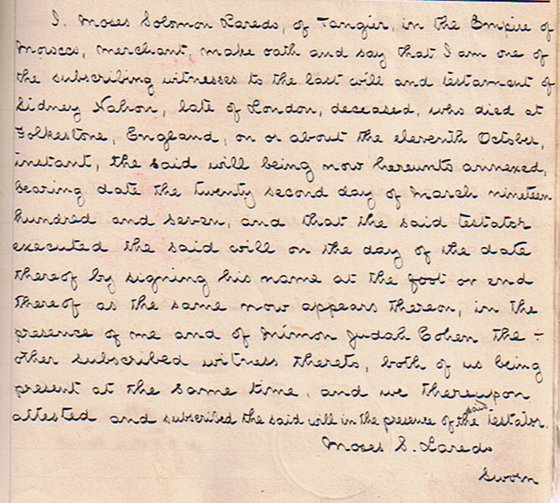 I, Moses Solomon Laredo, of Tangier, in the Empire of
Morocco, merchant, make oath and say that I am one of
the subscribing witnesses to the last will and testament of
Sidney Nahon, late of London, deceased, who died at
Folkestone, England, on or about the eleventh October,
instant, the said will being now hereunto annexed,
bearing date the twenty second day of March nineteen
hundred and seven, and that the said testator
executed the said will on the day of the date
thereof by signing his name at the foot or end
thereof as the same now appears thereon, in the
presence of me and of Mimon Judah Cohen the -
other subscribed witness thereto, both of us being
present at the same time, and we thereupon
attested and subscribed the said will in the presence of the said testator.
Moses S. Laredo
Sworn